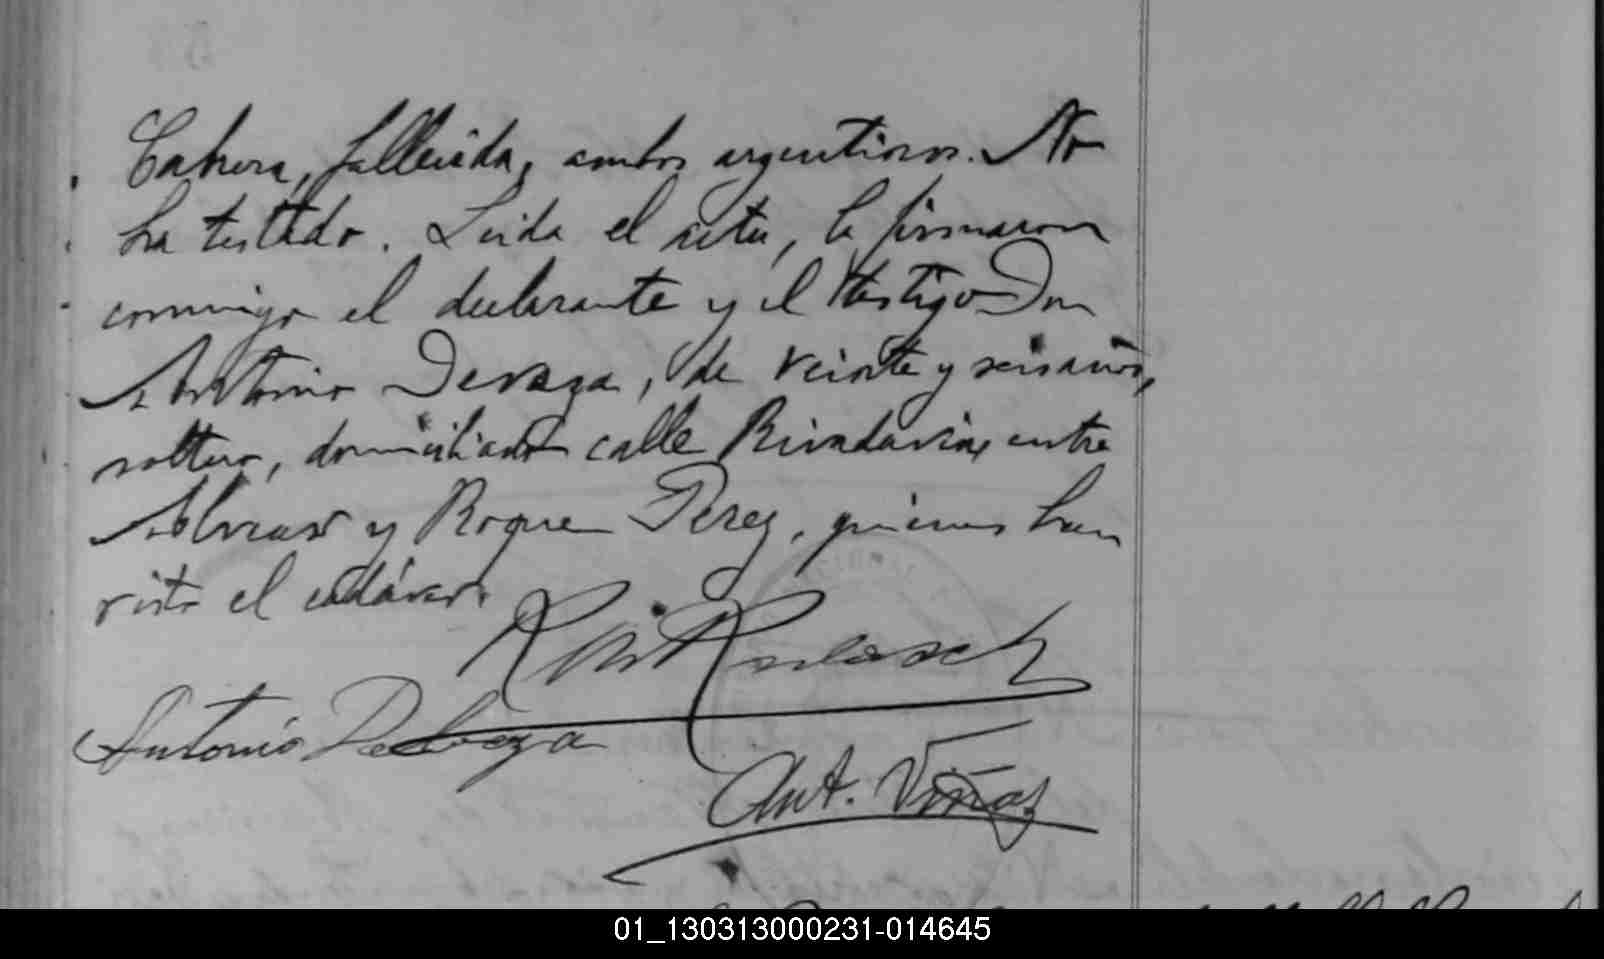 Cabrera, fallecida, ambos argentinos. No
ha testado. Leida el acta, la firmaron
conmigo el declarante y el testigo Don
Antonio Deveza, de veinte y seis años,
soltero, domiciliado calle Rivadavia, entre
Alvear y Roque Perez, quienes han
visto el cadáver.
Antonio
Ant. Viñas
01_130313000231-014645